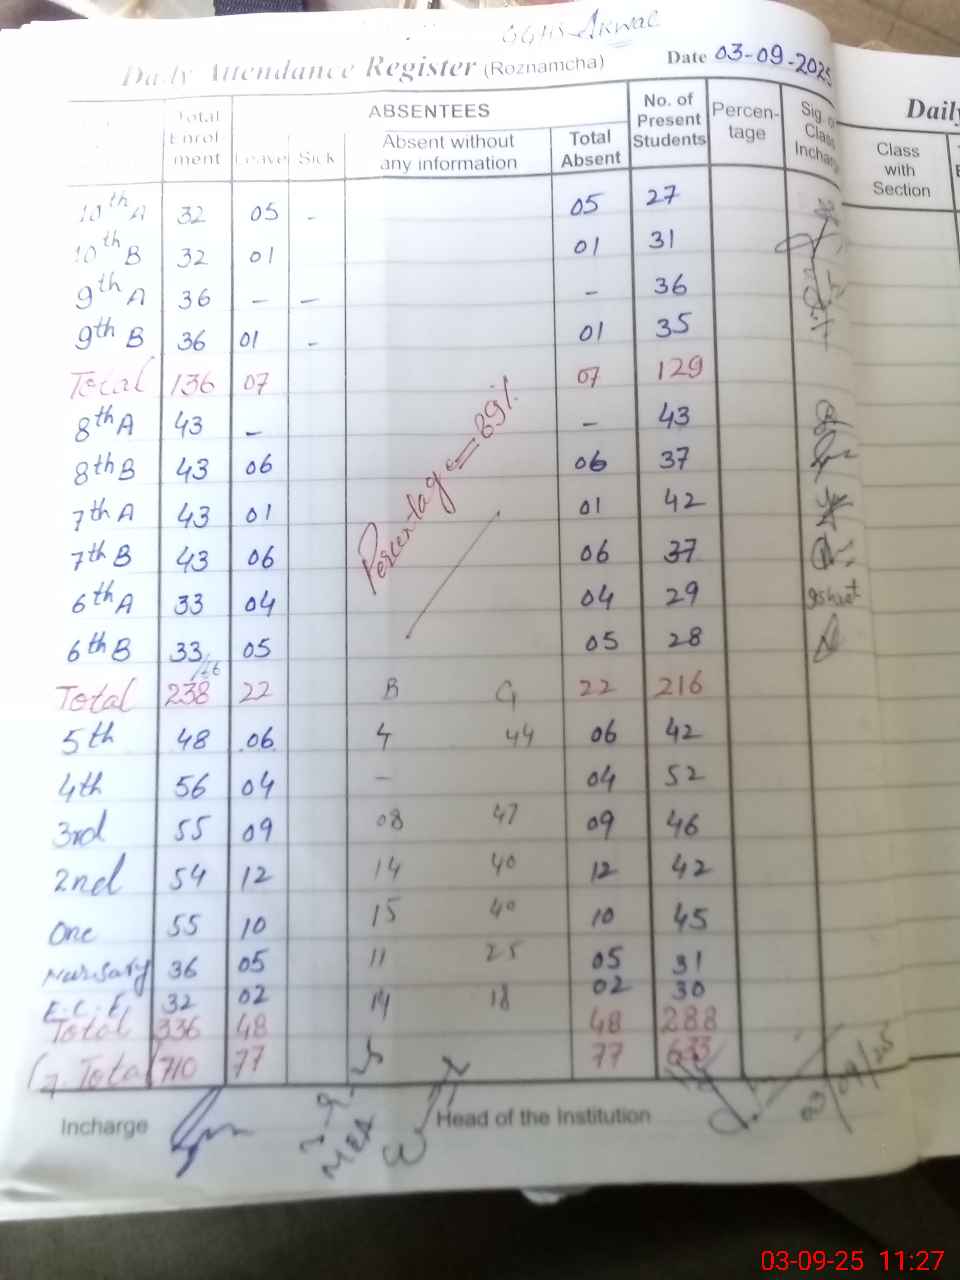 GGHS Akwal
Daily Attendance Register (Roznamcha) Date 03-09-2025
Total Enrolment Leave Sick ABSENTEES Absent without any information Total Absent No. of Present Students Percentage Sig. of Class Incharge
10th A 32 05 - 05 27
10th B 32 01 01 31
9th A 36 - - - 36
9th B 36 01 - 01 35
Total 136 07 07 129
8th A 43 - - 43
8th B 43 06 06 37
7th A 43 01 01 42
7th B 43 06 06 37
6th A 33 04 04 29
6th B 33 05 05 28
Percentage = 89%
Total 238 22 B G 22 216
5th 48 06 4 44 06 42
4th 56 04 - 04 52
3rd 55 09 08 47 09 46
2nd 54 12 14 40 12 42
One 55 10 15 40 10 45
Nursary 36 05 11 25 05 31
E.C.E 32 02 14 18 02 30
Total 336 48 48 288
G. Total 710 77 77 633
Incharge Head of the Institution
MEA
03/09/25
Daily
Class with Section
03-09-25 11:27